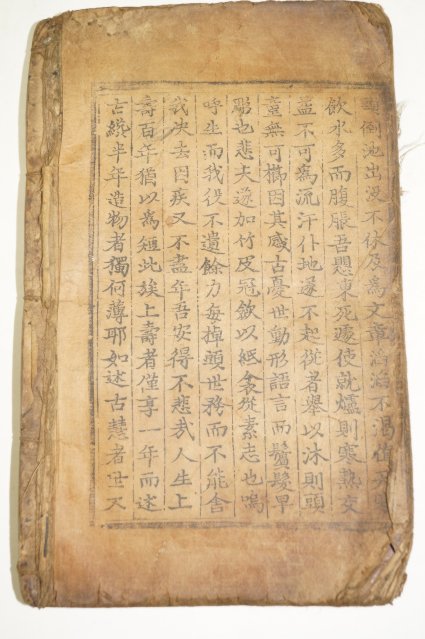 倒池出沒不休及為文章滔滔不渴
飲水多而腹脹吾愳東死遽使就爐則寒熱交
盖不可為流汗仆地遂不起從者舉以沐則頭
童無可櫛因其感古憂世動形語言而鬢髮早
彫也悲夫遂加竹皮冠斂以紙衾從素志也嗚
呼坐而我役不遺餘力每掉頭世務而不能舍
我決去因疾又不盡年吾安得不悲哉人生上
壽百年猶以為短此族上壽者僅享一年而述
古纔半年造物者獨何薄耶如述古慧者世又